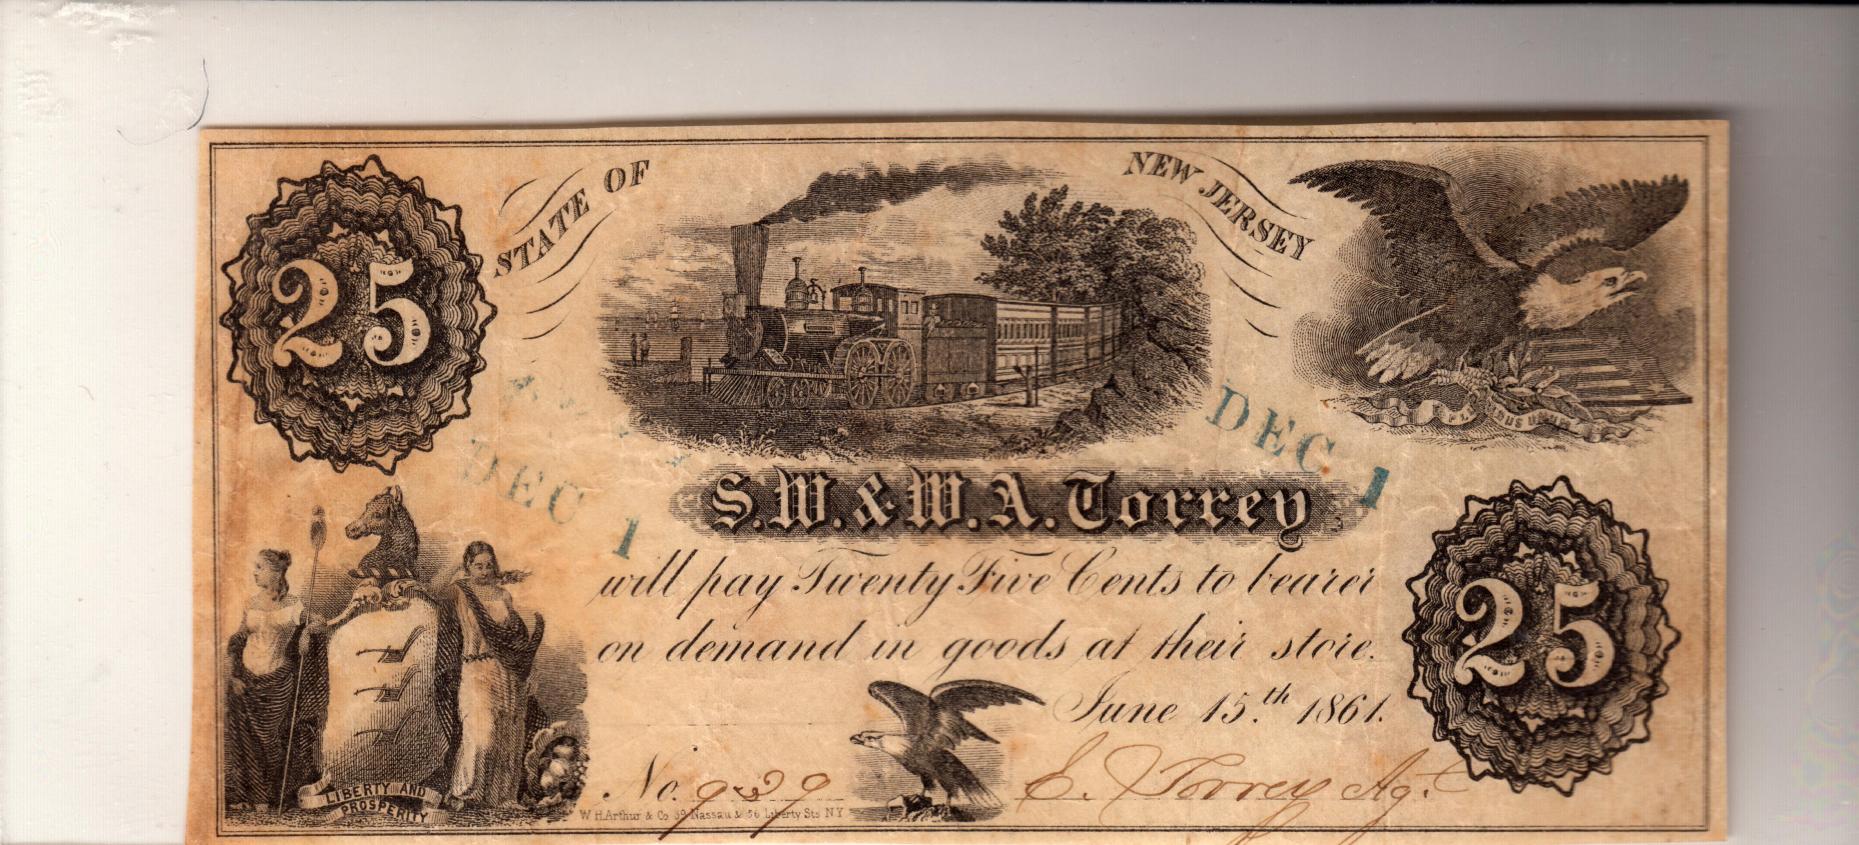 25
STATE OF
NEW JERSEY
DEC 1
DEC 1
S.W. & W.A. Torrey
will pay Twenty Five Cents to bearer
on demand in goods at their store.
25
June 15.th 1861.
LIBERTY AND
PROSPERITY
No. 939
E. Torrey Agt
W H Arthur & Co 39 Nassau & 56 Liberty Sts N Y